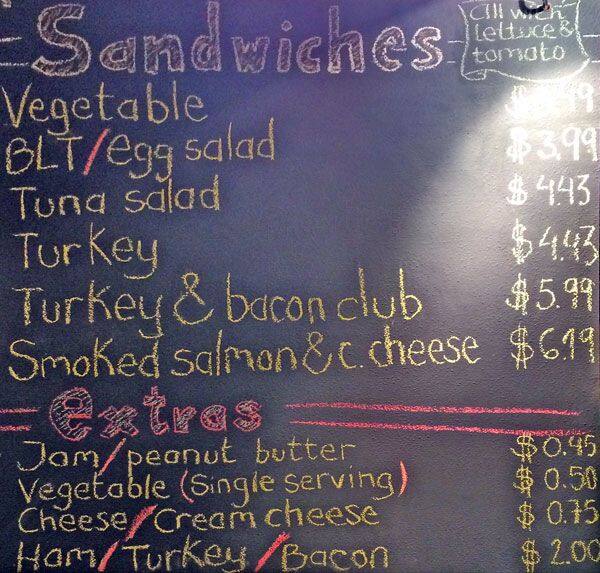 Sandwiches
All with
lettuce &
tomato
Vegetable
BLT/egg salad $3.99
Tuna salad $4.43
Turkey $4.43
Turkey & bacon club $5.99
Smoked salmon & c. cheese $6.19
extras
Jam/peanut butter $0.45
Vegetable (Single serving) $0.50
Cheese/Cream cheese $0.75
Ham/Turkey/Bacon $2.00